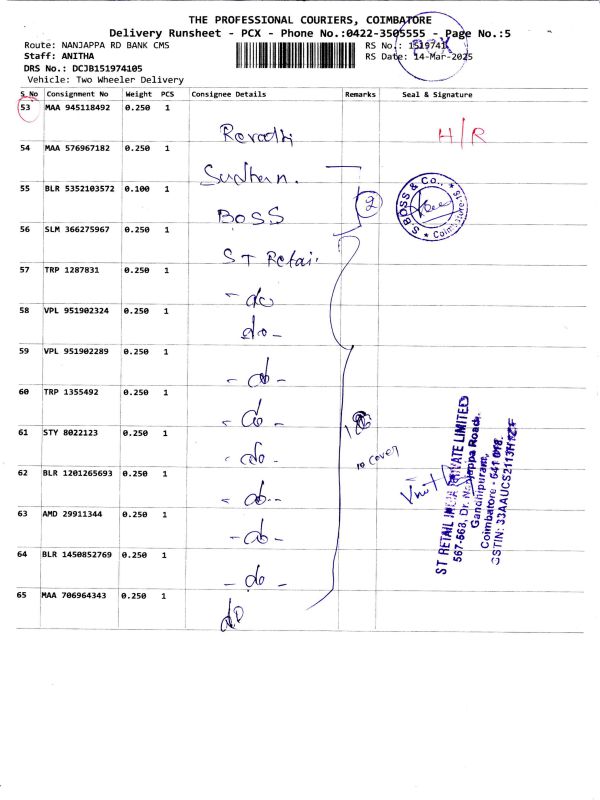 THE PROFESSIONAL COURIERS, COIMBATORE
Delivery Runsheet - PCX - Phone No.:0422-3505555 - Page No.:5
Route: NANJAPPA RD BANK CMS
RS No.: 1519741
Staff: ANITHA
RS Date: 14-Mar-2025
DRS No.: DCJB151974105
Vehicle: Two Wheeler Delivery
S_No Consignment No Weight PCS Consignee Details Remarks Seal & Signature
53 MAA 945118492 0.250 1 Revathi H/R
54 MAA 576967182 0.250 1
55 BLR 5352103572 0.100 1 BOSS 2
S BOSS & Co., * Coimbatore-18 *
56 SLM 366275967 0.250 1 ST Retai.
57 TRP 1287831 0.250 1 - do
58 VPL 951902324 0.250 1 do -
59 VPL 951902289 0.250 1 - do -
60 TRP 1355492 0.250 1 - do -
61 STY 8022123 0.250 1 - do -
62 BLR 1201265693 0.250 1 - do -
63 AMD 29911344 0.250 1 - do -
64 BLR 1450852769 0.250 1 - do -
65 MAA 706964343 0.250 1 do
10 cover
ST RETAIL INDIA PRIVATE LIMITED
567-568, Dr. Nanjappa Road,
Gandhipuram,
Coimbatore - 641 018.